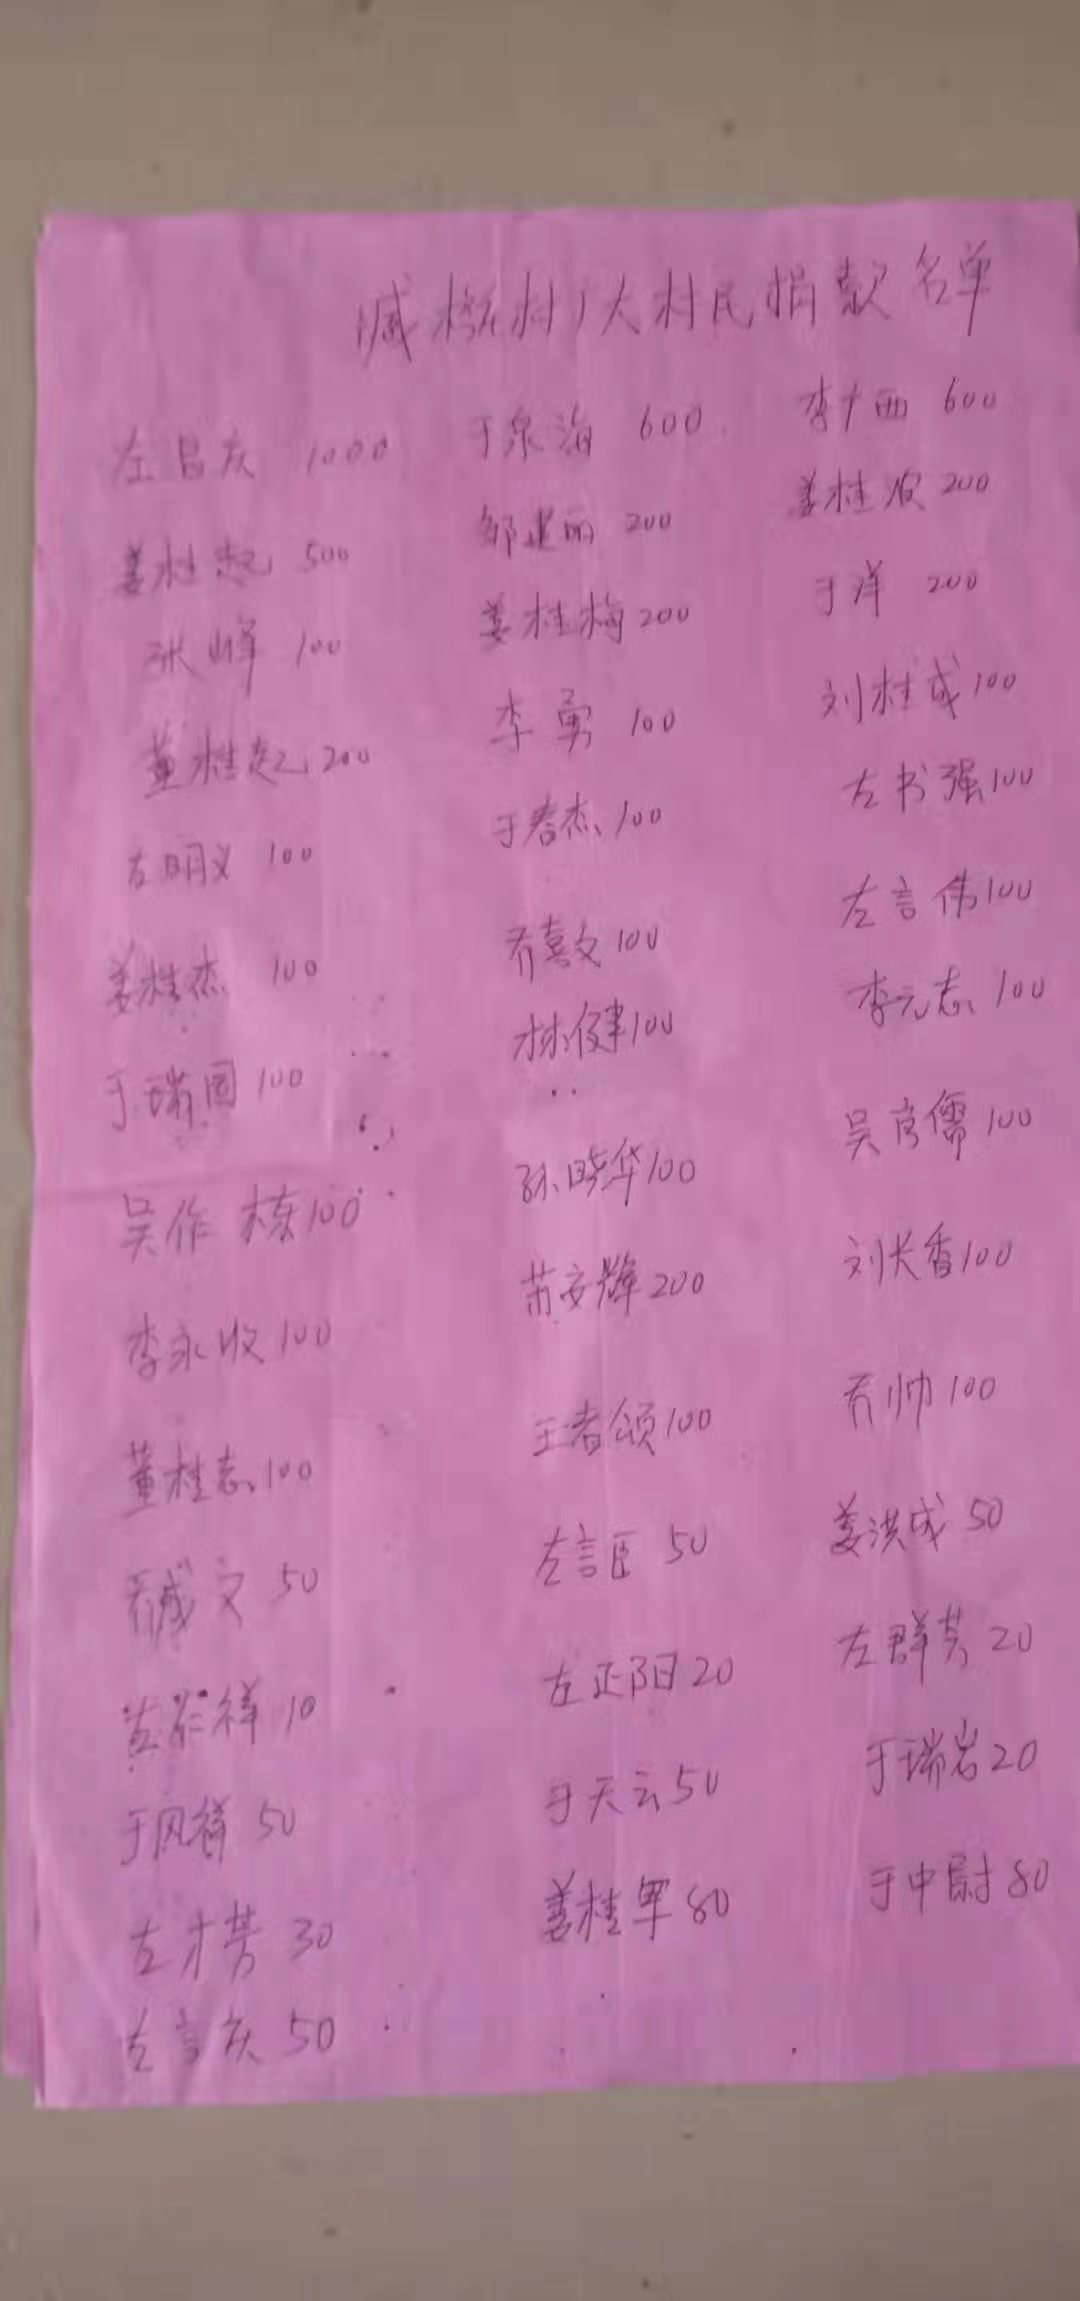 臧 村广大村民捐款名单
左昌庆 1000 于泉海 600 李广西 600
姜桂起 500 邹建丽 200 姜桂波 200
张峰 100 姜桂梅 200 于洋 200
董桂起 200 李勇 100 刘桂成 100
左明义 100 于春杰 100 左书强 100
姜桂杰 100 乔喜文 100 左言伟 100
于瑞国 100 林健 100 李元志 100
吴作栋 100 孙晓华 100 吴官儒 100
李永收 100 苏安辉 200 刘长香 100
董桂志 100 王者颂 100 乔帅 100
乔成文 50 左言臣 50 姜洪成 50
左 祥 10 左正阳 20 左群芳 20
于风祥 50 于天云 50 于瑞岩 20
左才芳 30 姜桂军 80 于中尉 80
左言庆 50